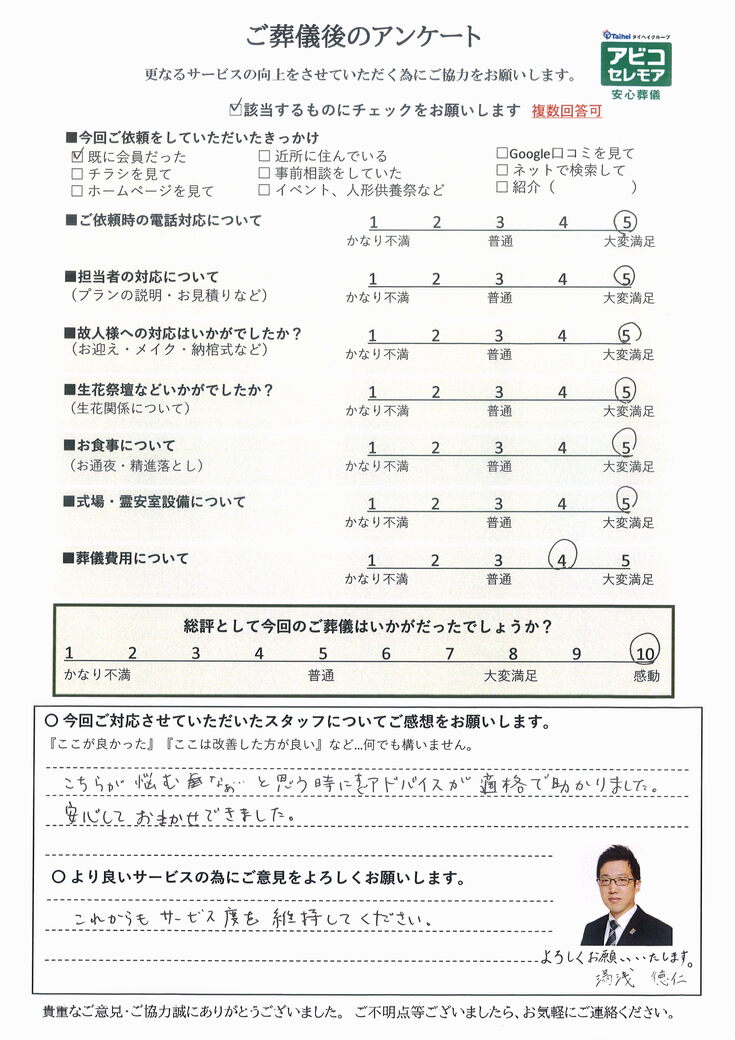 ご葬儀後のアンケート
Taihei タイヘイグループ
アビコ
セレモア
安心葬儀
更なるサービスの向上をさせていただく為にご協力をお願いします。
☑該当するものにチェックをお願いします 複数回答可
■今回ご依頼をしていただいたきっかけ
☑既に会員だった □近所に住んでいる □Google口コミを見て
□チラシを見て □事前相談をしていた □ネットで検索して
□ホームページを見て □イベント、人形供養祭など □紹介（ ）
■ご依頼時の電話対応について 1 2 3 4 5
かなり不満 普通 大変満足
■担当者の対応について 1 2 3 4 5
（プランの説明・お見積りなど） かなり不満 普通 大変満足
■故人様への対応はいかがでしたか？ 1 2 3 4 5
（お迎え・メイク・納棺式など） かなり不満 普通 大変満足
■生花祭壇などいかがでしたか？ 1 2 3 4 5
（生花関係について） かなり不満 普通 大変満足
■お食事について 1 2 3 4 5
（お通夜・精進落とし） かなり不満 普通 大変満足
■式場・霊安室設備について 1 2 3 4 5
かなり不満 普通 大変満足
■葬儀費用について 1 2 3 4 5
かなり不満 普通 大変満足
総評として今回のご葬儀はいかがだったでしょうか？
1 2 3 4 5 6 7 8 9 10
かなり不満 普通 大変満足 感動
〇今回ご対応させていただいたスタッフについてご感想をお願いします。
『ここが良かった』『ここは改善した方が良い』など…何でも構いません。
こちらが悩む なぁ… と思う時に アドバイスが適格で助かりました。
安心しておまかせできました。
〇より良いサービスの為にご意見をよろしくお願いします。
これからもサービス度を維持してください。
よろしくお願いいたします。
湯浅 徳仁
貴重なご意見・ご協力誠にありがとうございました。 ご不明点等ございましたら、お気軽にご連絡ください。